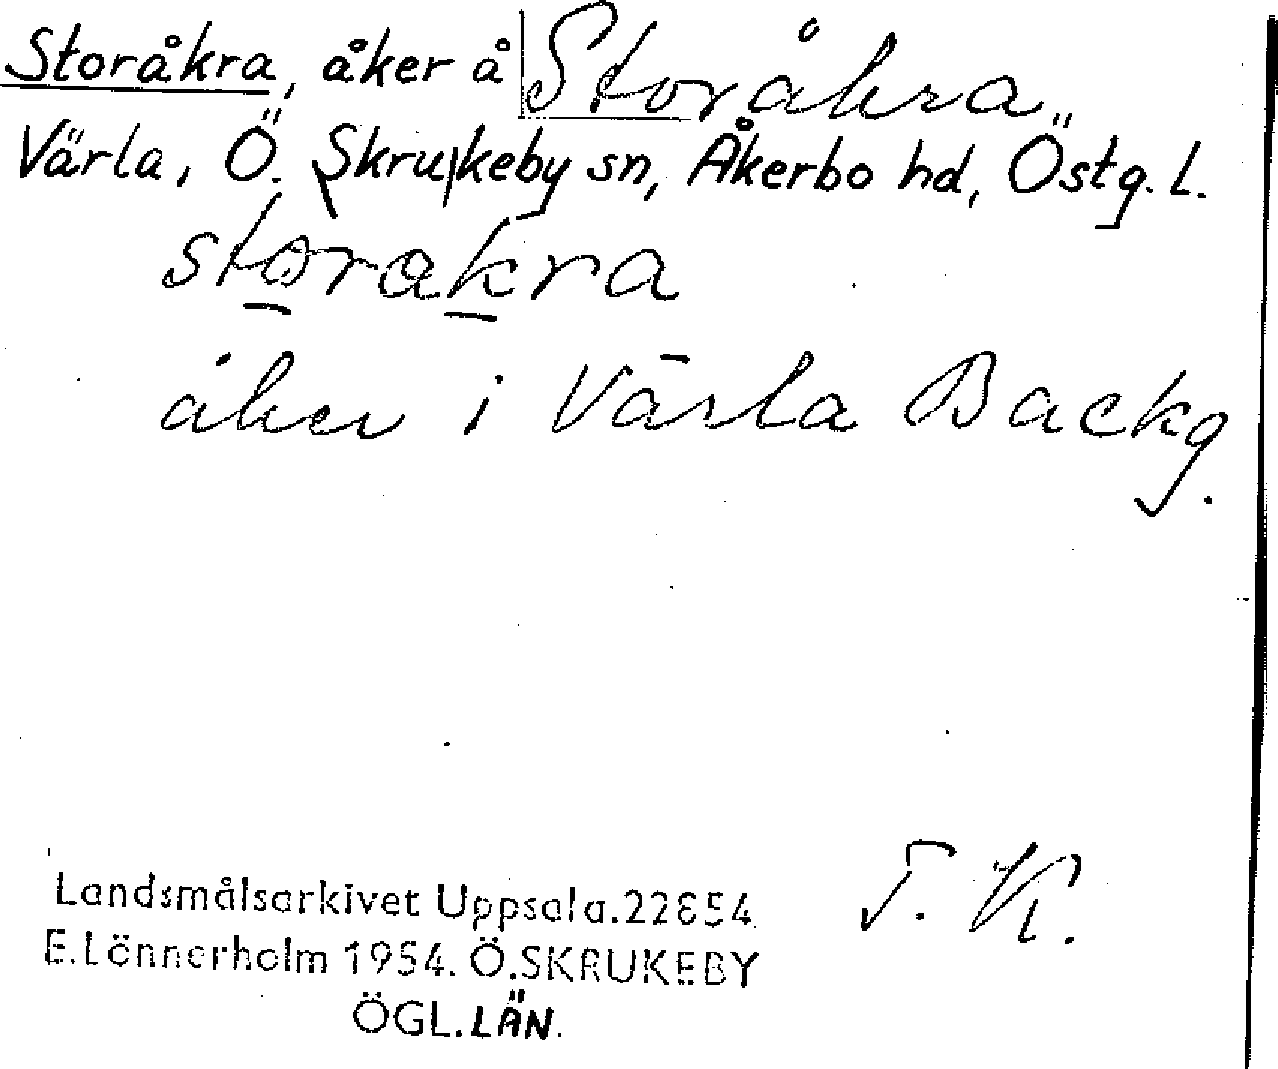 Storåkra, åker å Storåkra
Värla, Ö. Skrukeby sn, Åkerbo hd, Östg. l.
storakra
åker i Värla Backg.
Landsmålsarkivet Uppsala.22654 F. K.
E.Lönnerholm 1954. Ö.SKRUKEBY
ÖGL.LÄN.